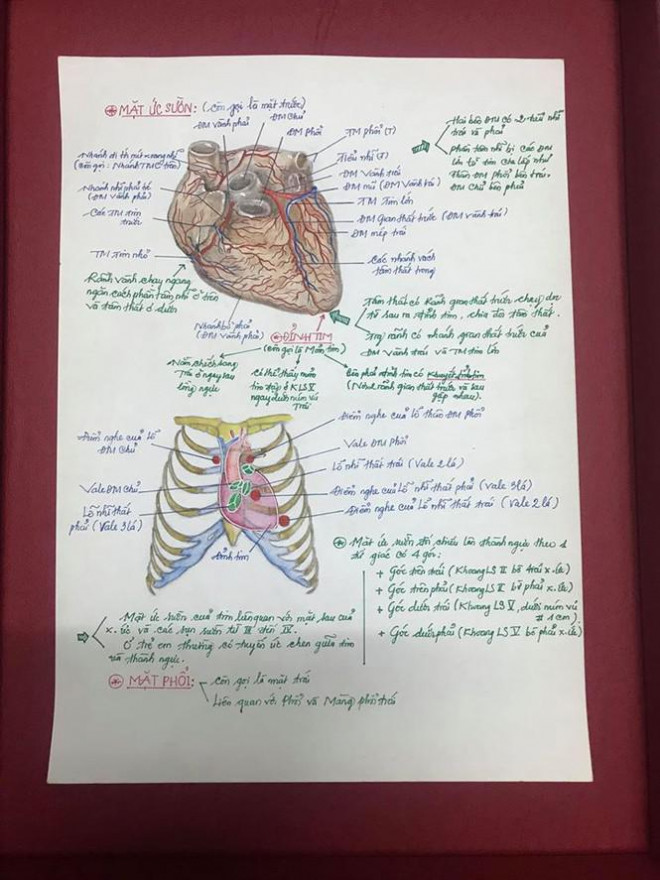 ⊛ MẶT ỨC SƯỜN: (còn gọi là mặt trước)
ĐM chủ
ĐM vành phải
ĐM phổi
TM phổi (T)
Tiểu nhĩ (T)
ĐM Vành trái
ĐM mũ (ĐM Vành trái)
TM tim lớn
ĐM gian thất trước (ĐM vành trái)
ĐM mép trái
Các nhánh vách
tâm thất trong
Nhánh nhĩ phải
(ĐM vành phải)
Các TM tim
trước
TM tim nhỏ
Rãnh vành chạy ngang
ngăn cách phần tâm nhĩ ở trên
và tâm thất ở dưới
Nhánh bờ phải
(ĐM vành phải)
Hai bên ĐM có 2 tiểu nhĩ
trái và phải
Phần tâm nhĩ bị các ĐM
lớn từ tim che lấp như
thân ĐM phổi bên trái,
ĐM chủ bên phải
Tâm thất có rãnh gian thất trước chạy dọc
từ sau ra đỉnh tim, chia đôi tâm thất.
Trong rãnh có nhánh gian thất trước của
ĐM vành trái và TM tim lớn
⊛ ĐỈNH TIM
(Còn gọi là Mỏm tim)
Nằm chếch sang
Trái ở ngay sau
lồng ngực
Có thể thấy mỏm
tim đập ở KLS V
ngay dưới núm vú
Trái
Bên phải đỉnh tim có khuyết đỉnh tim
(Nơi rãnh gian thất trước và sau
gặp nhau).
Điểm nghe của lỗ thân ĐM phổi
Điểm nghe của lỗ
ĐM chủ
Vale ĐM phổi
Lỗ nhĩ thất trái (Vale 2 lá)
Vale ĐM chủ
Điểm nghe của lỗ nhĩ thất phải (Vale 3 lá)
Lỗ nhĩ thất
phải (Vale 3 lá)
Điểm nghe của lỗ nhĩ thất trái (Vale 2 lá)
Đỉnh tim
⊛ Mặt ức sườn đối chiếu lên thành ngực theo 1
tứ giác có 4 góc:
+ Góc trên trái (Khoang LS II bờ trái x.ức)
+ Góc trên phải (Khoang LS II bờ phải x.ức)
+ Góc dưới trái (Khoang LS V, dưới núm vú
# 1 cm)
+ Góc dưới phải (Khoang LS V bờ phải x.ức)
Mặt ức sườn của tim liên quan với mặt sau của
x. ức và các sụn sườn từ III đến IV.
Ở trẻ em thường có tuyến ức chen giữa tim
và thành ngực.
⊛ MẶT PHỔI:
Còn gọi là mặt trái
Liên quan với Phổi và Màng phổi trái